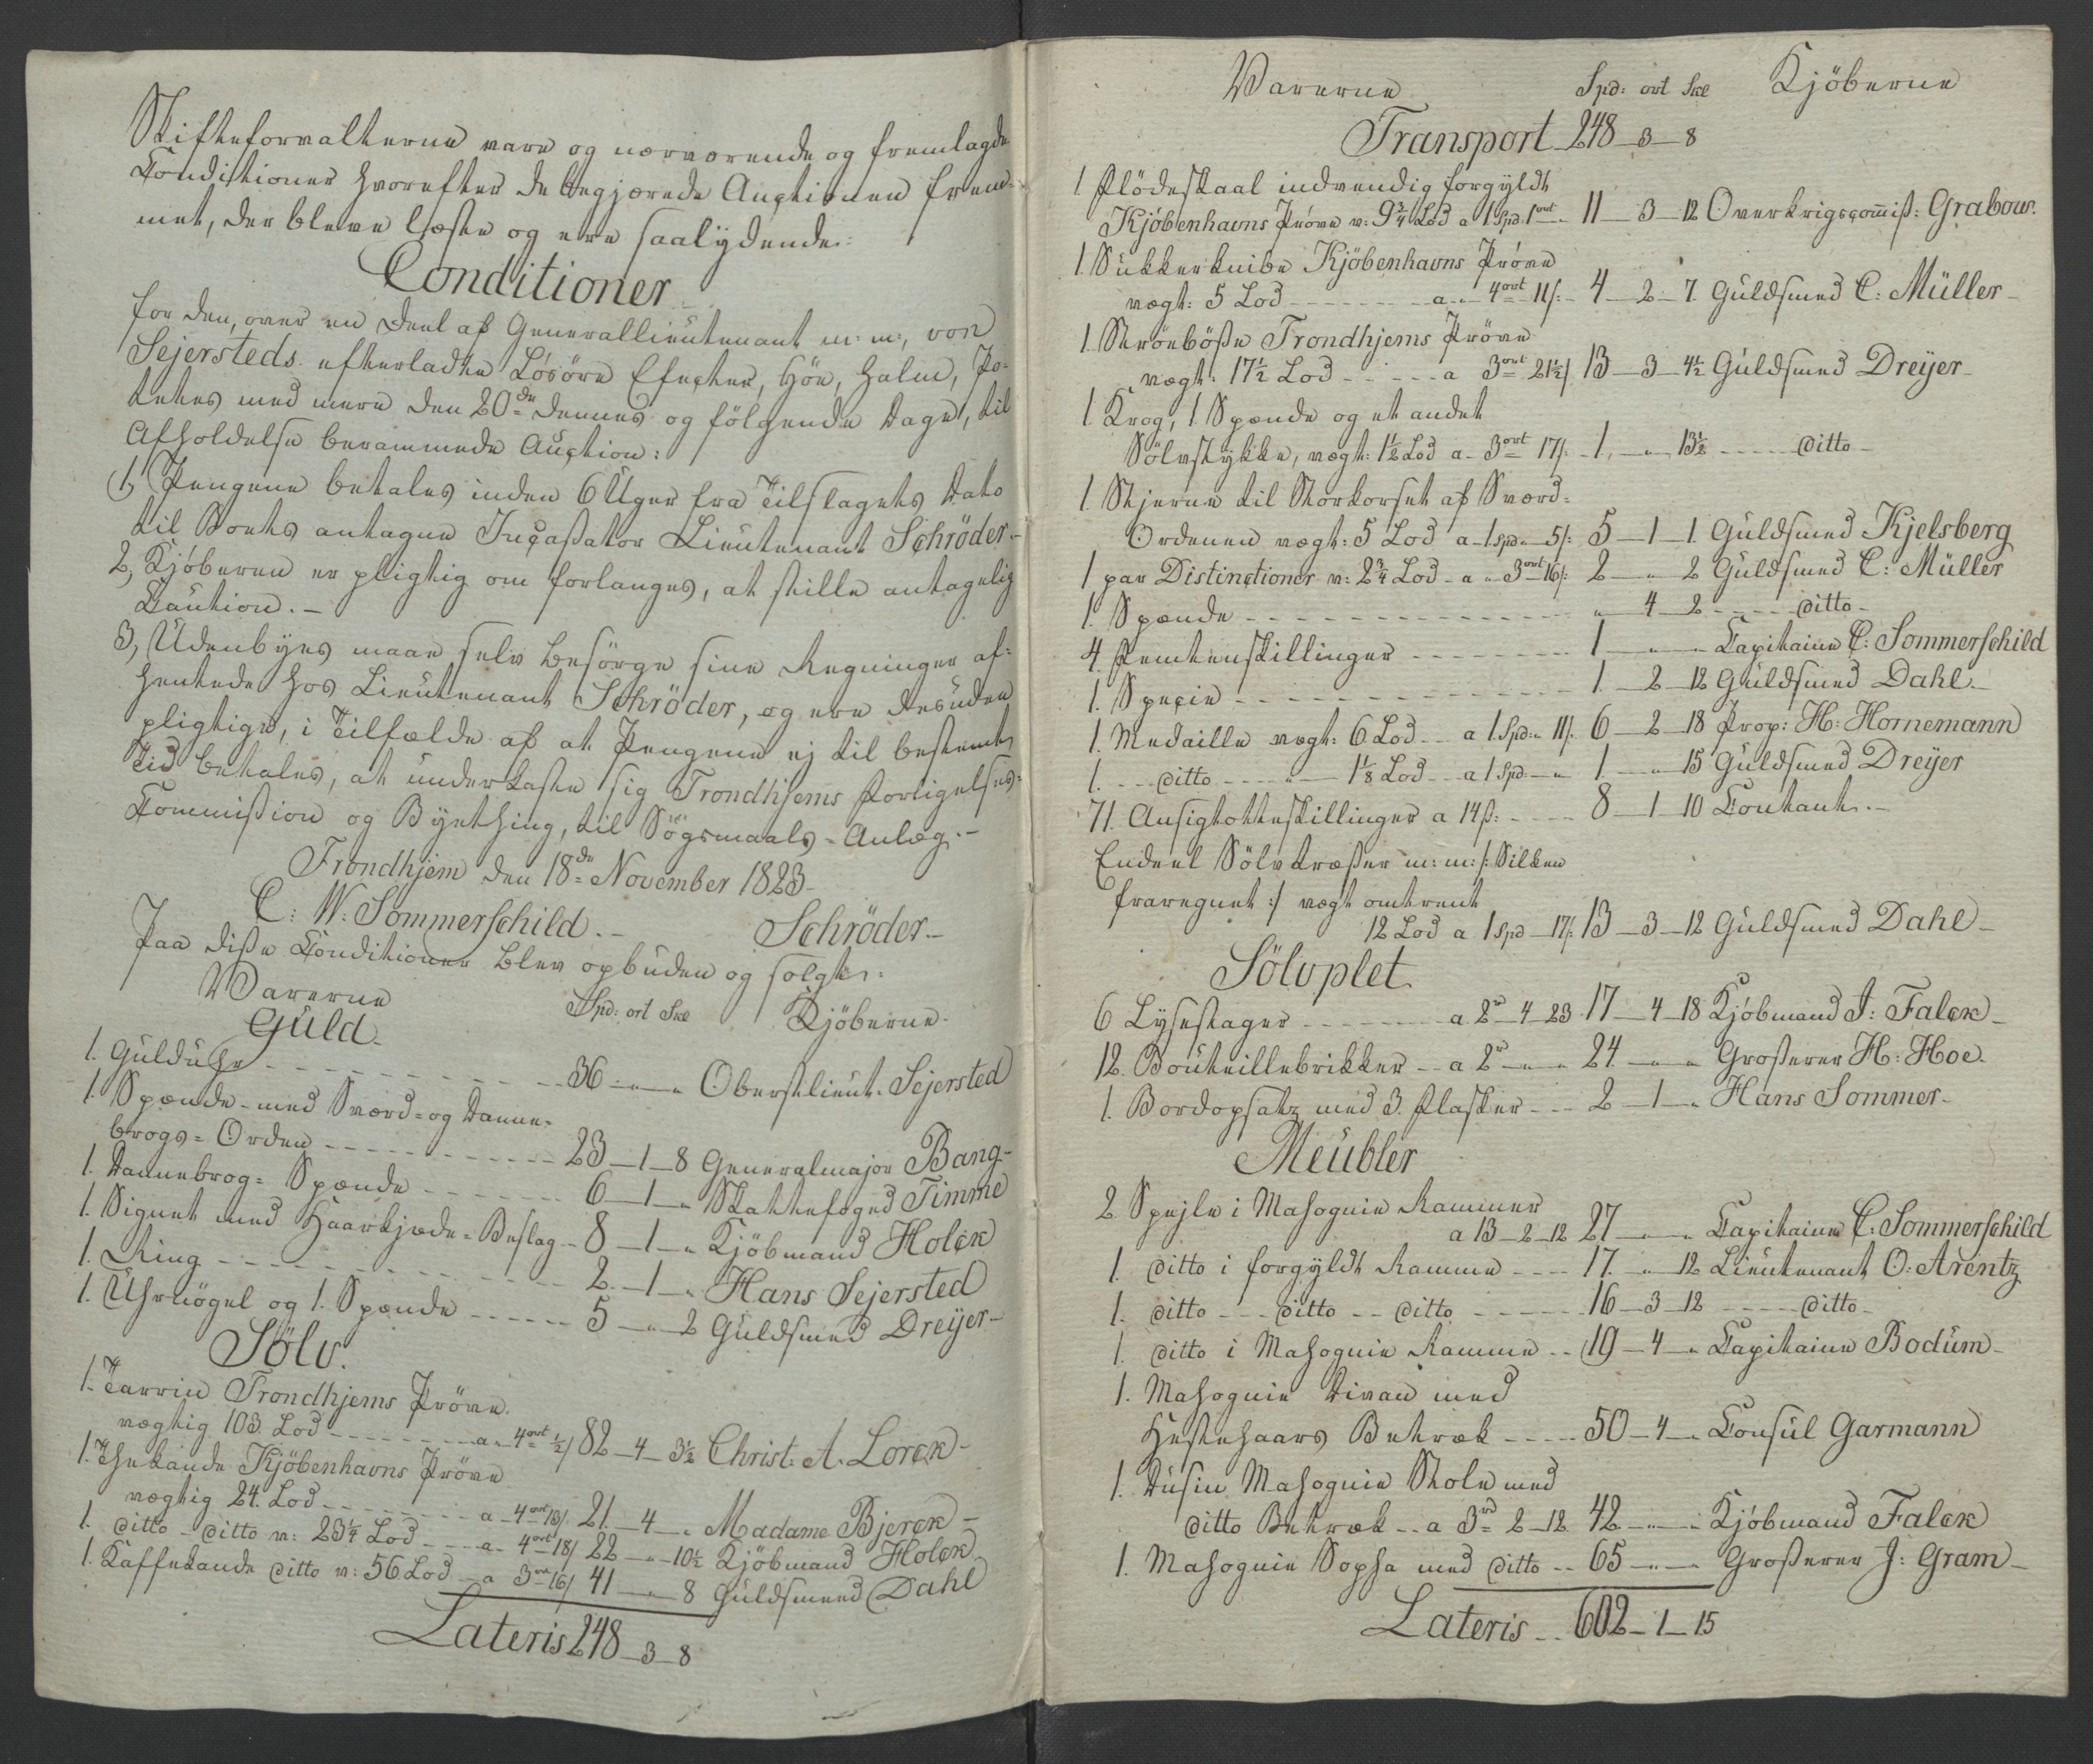 Skifteforvalterne vare og nærværende og fremlagde
Conditioner hvorefter de begjærede Auctionen frem-
met, der bleve læste og ere saalÿdende:
Conditioner
for den, over en Deel af Generallieutenant m: m:, von
Sejersteds efterladte Lösöre Efecter, Höe, Halm, Po-
tetes med mere den 20de dennes og fölgende Dage, til
Afholdelse berammede Auction:
1, Pengene betales inden 6 Uger fra Tilslagets Dato
til Boets antagne Incaßator Lieutenant Schröder.-
2, Kjöberen er pligtig om forlanges, at stille antagelig
Caution.-
3, Udenbÿes maae selv besörge sine Regninger af-
hentede hos Lieutenant Schröder, og ere desuden
pligtige, i Tilfælde af at Pengene ej til bestemt
Tid betales, at underkaste sig Trondhjems Forligelses-
Commißion og Bÿething, til Sögsmaals-Anlæg.-
Trondhjem den 18de November 1823-
C: W: Sommerschild.- Schröder-
Paa diße Conditioner blev opbuden og solgt:
Varerne Spd: ort Skl Kjöberne.
Guld
1. Gulduhr - - - 36 - " - " Oberstlieut: Sejersted
1. Spænde-med Sværd-og Danne-
brogs-Orden - - - 23-1-8 Generalmajor Bang-
1. Dannebrog-Spænde - - - 6-1-" Skattefoged Timme
1. Signet med Haarkjæde-Beslag - 8-1-" Kjöbmand Holck
1. Ring - - - 2-1-" Hans Sejersted
1. Uhrnögel og 1. Spænde - - - 5-"-2 Guldsmed Dreÿer-
Sölv.
1. Tarrin Trondhjems Pröve.
vægtig 103 Lod - - - a " 4ort ½/ 82-4-3½ Christ: A. Lorck-
1. Thekande Kjöbenhavns Pröve
vægtig 24. Lod - - - a 4ort 13/. 21-4-" Madame Bjerck-
1. ditto - ditto v: 23¼ Lod - - - a 4ort 18/ 22-"-10½ Kjöbmand Holck
1. Kaffekande ditto v: 56 Lod - a 3ort 16/ 41-"-8 Guldsmed Dahl
Lateris 248-3-8
Varerne Spd: ort Skl Kjöberne
Transport 248-3-8
1 Flödeskaal indvendig forgÿldt
Kjöbenhavns Pröve v: 9¾ Lod a 1 Spd. 1ort - " 11-3-12 Overkrigscom̅iß: Grabow.
1. Sukkerknibe Kjöbenhavns Pröve
vægt: 5 Lod - - - a " 4ort 11/: 4-2-7 Guldsmed C: Müller-
1. Ströeböße Trondhjems Pröve
vægt: 17½ Lod - - - a 3ort 21½/ 13-3-4½ Guldsmed Dreÿer-
1 Krog, 1 Spænde og et andet
Sölvstÿkke, vægt: 1½ Lod a - 3ort 17/: 1-"-13½ - - - ditto-
1. Stjerne til Storkorset af Sværd-
Ordenen vægt: 5 Lod a 1 Spd " 5/: 5-1-1 Guldsmed Kjelsberg
1 par Distinctioner v: 2¾ Lod - a " 3ort 16/: 2-"-2 Guldsmed C: Müller
1. Spænde - - - "-4-2 - - - ditto-
4 Femtenskillinger - - - 1-"-" Capitaine C: Sommerschild
1. Specie - - - 1-2-12 Guldsmed Dahl.-
1. Medaille vægt: 6 Lod - - a 1 Spd: " 11/: 6-2-18 Prop: H: Hornemann
1. - - ditto - - - " - 1⅛ Lod - - a 1 Spd - " 1-"-15 Guldsmed Dreÿer
71. Ansigtotteskillinger a 14 ß: - - - 8-1-10 Contant.-
Endeel Sölvtræßer m: m: /: Silken
fraregnet :/ vægt omtrent
12 Lod a 1 Spd - 17/: 13-3-12 Guldsmed Dahl-
Sölvplet
6 Lÿsestager - - - a 2rd 4-23 17-4-18 Kjöbmand J: Falck-
12. Bouteillebrikker - - a 2rd - " - " 24-"-" Großerer H: Hoe.
1. Bordopsatz med 3. Flasker - - - 2-1-" Hans Sommer-
Meubler
2 Spejle i Mahognie Rammer
a 13-2-12 27-"-" Capitaine C: Sommerschild
1. ditto i forgÿldt Ramme - - - 17-"-12 Lieutenant O: Arentz
1. ditto - - - ditto - - ditto - - - 16-3-12 - - - ditto-
1. ditto i Mahognie Ramme - - 19-4-" Capitaine Bodüm-
1. Mahognie Divan med
Hestehaars Betræk - - - 50-4-" Consul Garmann
1. Dusin Mahognie Stole med
ditto Betræk - - a 3rd 2-12. 42-"-" Kjöbmand Falck
1. Mahognie Sopha med ditto - - 65-"-" Großerer J: Gram-
Lateris - - 602-1-15